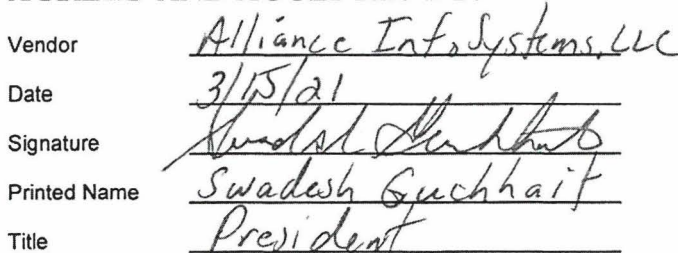 Vendor Alliance InfoSystems, LLC
Date 3/15/21
Signature
Printed Name Swadesh Guchhait
Title President